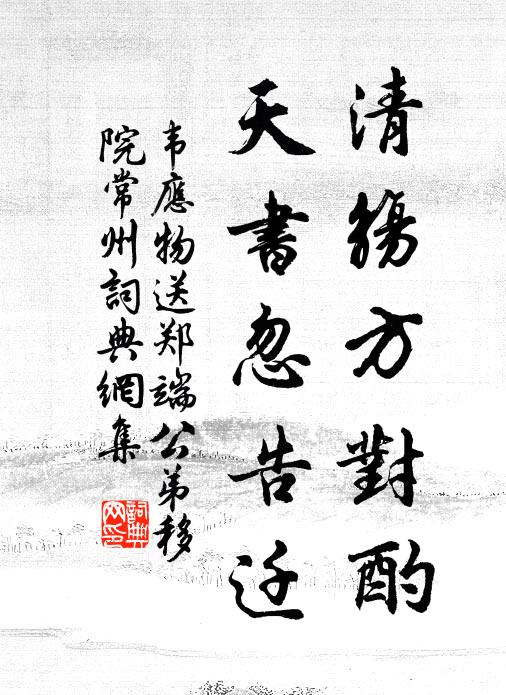 清觴方對酌
天書忽告迁
韦應物送郑端公弟移
院常州詞典網集
詞典
网印